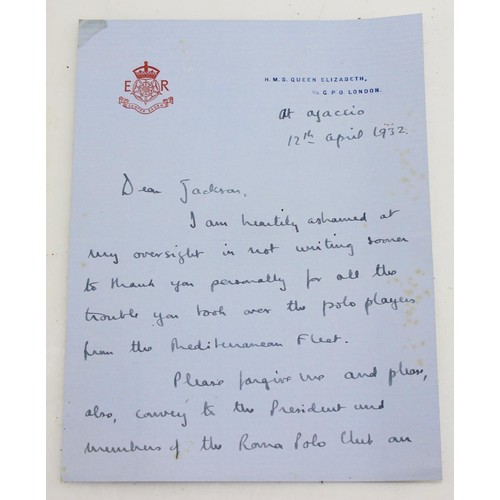 E R
SEMPER EADEM
H.M.S. QUEEN ELIZABETH,
c/o G.P.O. LONDON.
At Ajaccio
12th April 1932.
Dear Jackson,
I am heartily ashamed at
my oversight in not writing sooner
to thank you personally for all the
trouble you took over the polo players
from the Mediterranean Fleet.
Please forgive me and please,
also, convey to the President and
members of the Roma Polo Club an